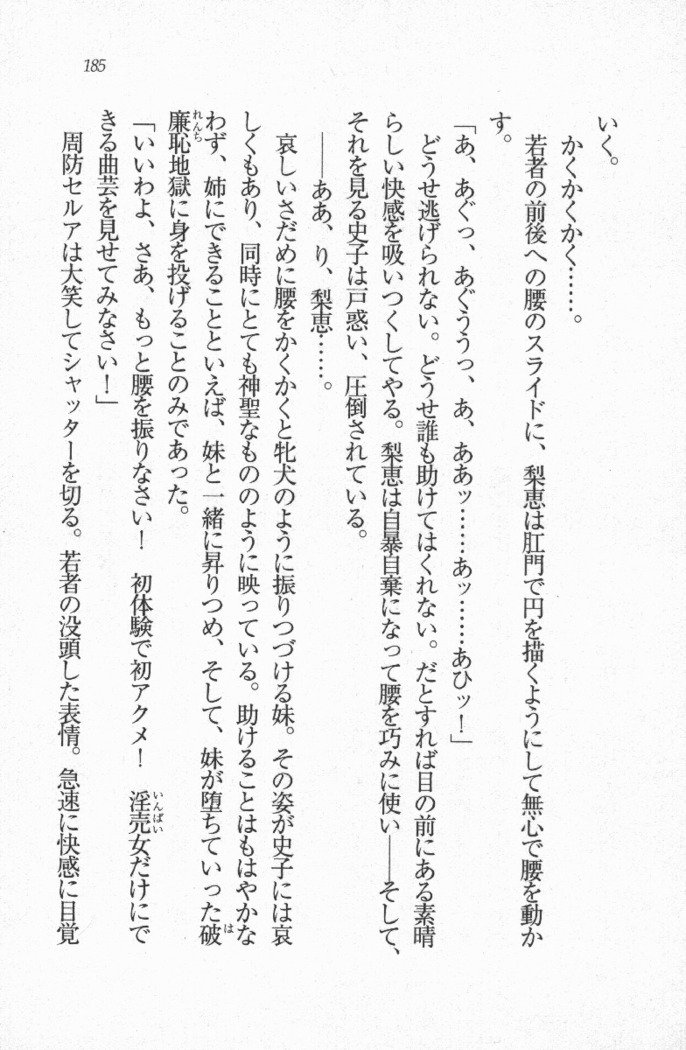 185
いく。
かくかくかく……。
若者の前後への腰のスライドに、梨恵は肛門で円を描くようにして無心で腰を動か
す。
「あ、あぐっ、あぐううっ、あ、ああッ……あッ……あひッ！」
どうせ逃げられない。どうせ誰も助けてはくれない。だとすれば目の前にある素晴
らしい快感を吸いつくしてやる。梨恵は自暴自棄になって腰を巧みに使い――そして、
それを見る史子は戸惑い、圧倒されている。
――ああ、り、梨恵……。
哀しいさだめに腰をかくかくと牝犬のように振りつづける妹。その姿が史子には哀
しくもあり、同時にとても神聖なもののように映っている。助けることはもはやかな
わず、姉にできることといえば、妹と一緒に昇りつめ、そして、妹が堕ちていった破は
廉恥れんち地獄に身を投げることのみであった。
「いいわよ、さあ、もっと腰を振りなさい！　初体験で初アクメ！　淫売いんばい女だけにで
きる曲芸を見せてみなさい！」
周防セルアは大笑してシャッターを切る。若者の没頭した表情。急速に快感に目覚